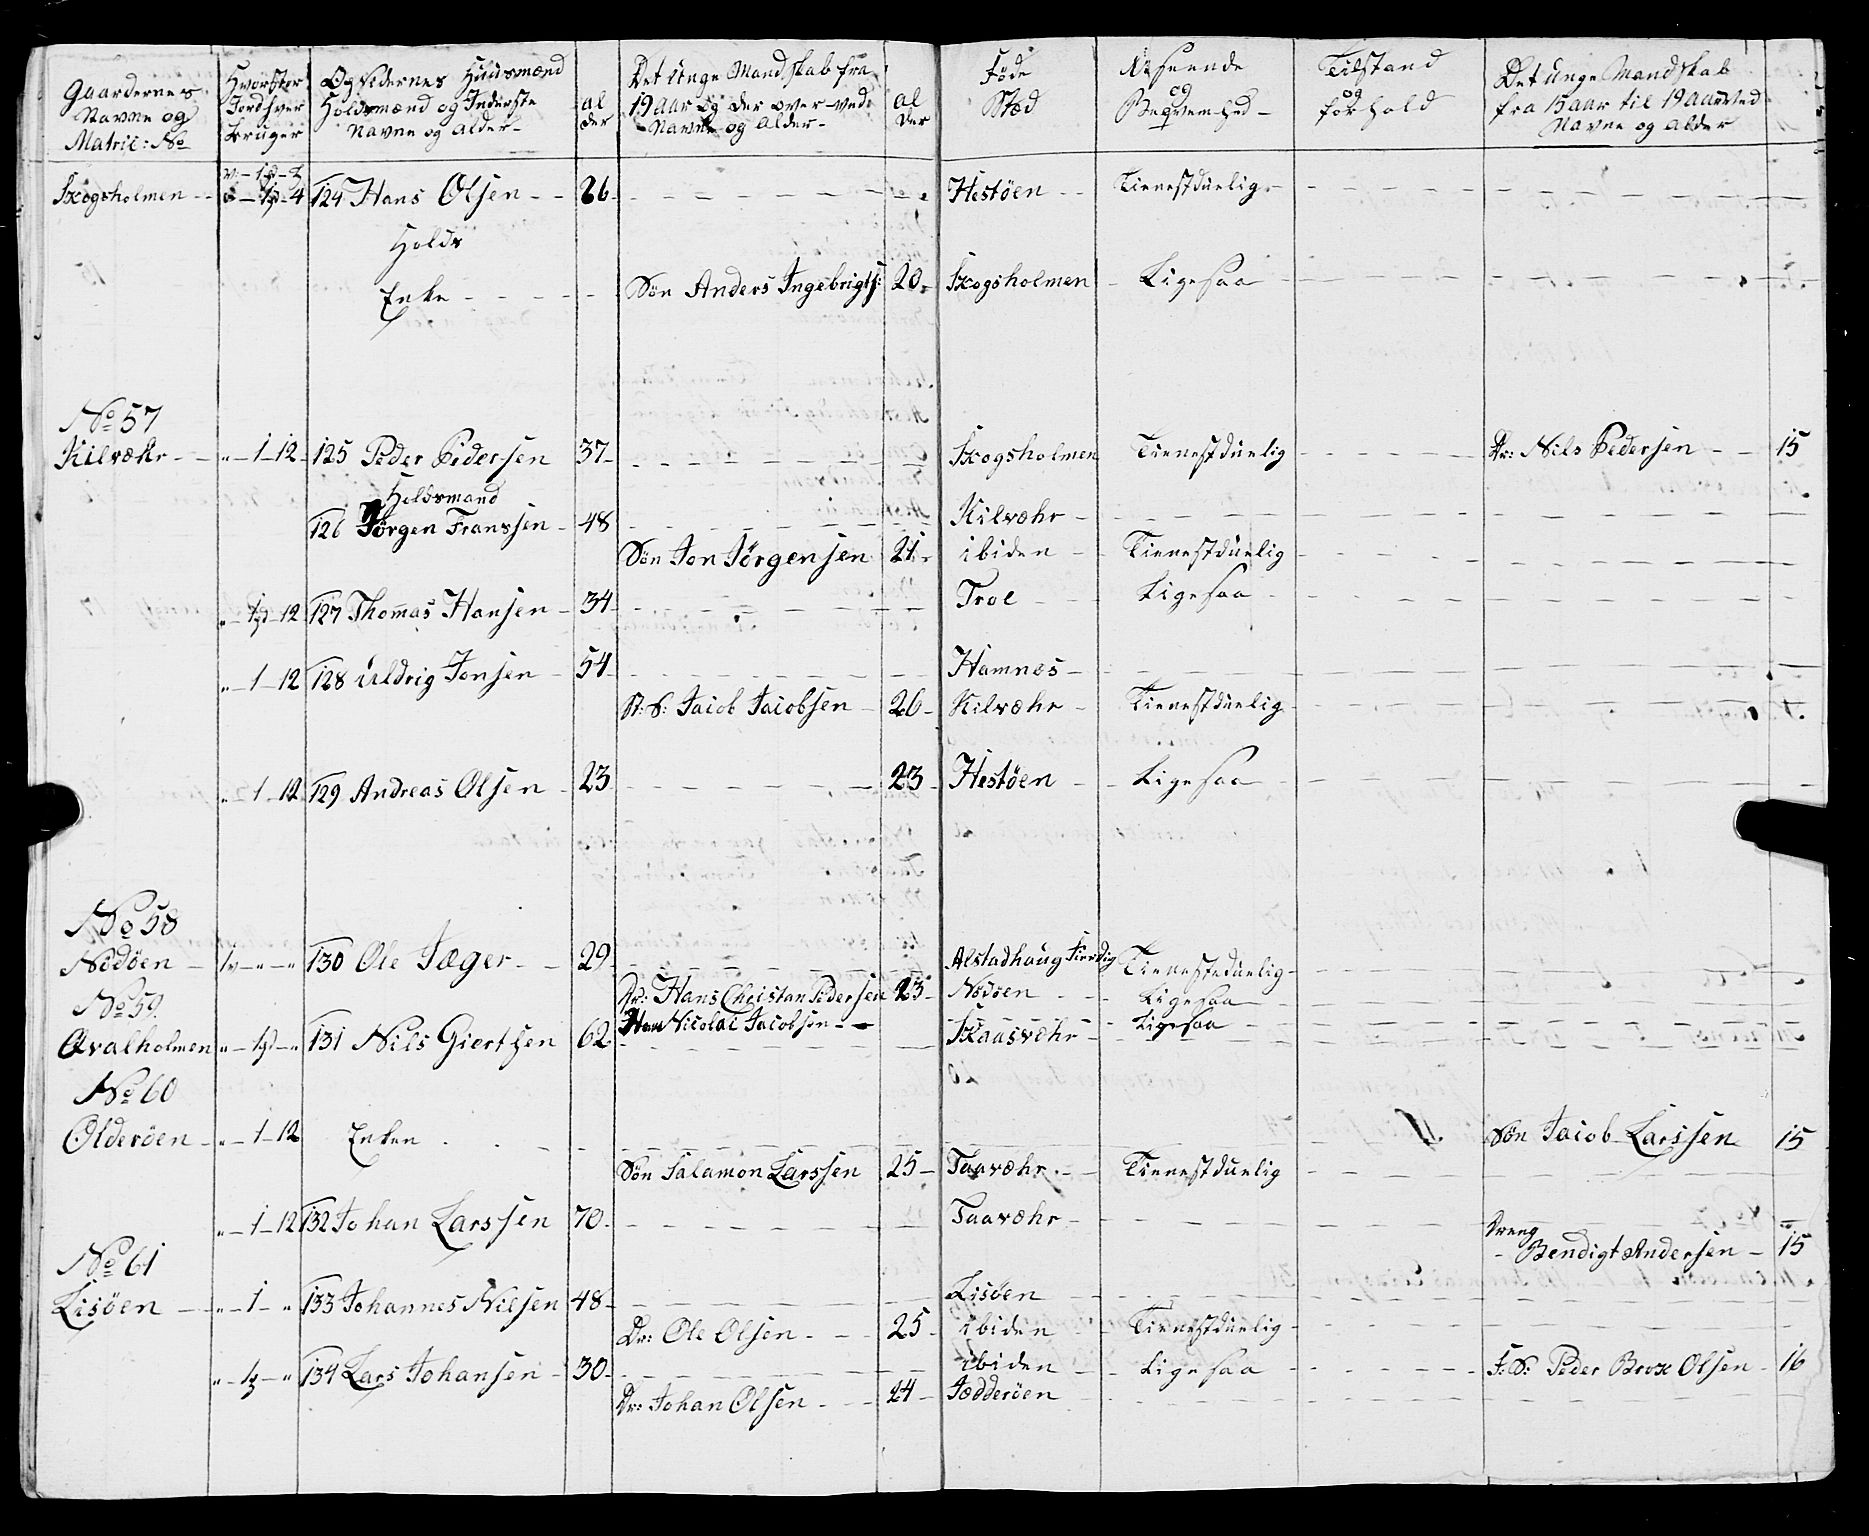 Gaardernes Navne og Matric: No
Hvor stor Jord hver bruger
Og Sidernes Huusmænd Holdsmænd og Inderste Navne og Alder-
al der
Det unge Mandskab fra 19 aar og der over ved Navne og Alder-
al der
Føde Stæd
Udseende og Beqvemhed-
Tilstand og forhold
Det unge Mandskab fra 15 aar til 19 aar ved Navne og alder
Skogsholmen 124 Hans Olsen 26 Hestöen Tienestduelig
Holds
Enke Sön Anders Ingebrigts: 20 Skogsholmen Ligesaa
No 57
Kilvæhr 1-12 125 Peder Pedersen 37 Skogsholmen Tienestduelig Dr: Nils Pedersen 15
Holdsmand
126 Jörgen Franssen 48 Kilvæhr
Sön Jon Jörgensen 21 ibiden Tienestduelig
12 127 Thomas Hansen 34 Troe Ligesaa
1-12 128 Uldrig Jonsen 54 Hamnes
St: S: Jacob Jacobsen 26 Kilvæhr Tienestduelig
1-12 129 Andreas Olsen 23 23 Hestöen Ligesaa
No 58
Nodöen 130 Ole Jæger 29 Alstadhaug Tienesteduelig
Dr: Hans Christan Pedersen 23 Nodöen Ligesaa
No 59
Nicolai Jacobsen Ligesaa
Qvalholmen 131 Nils Giertsen 62 Skaasvæhr
No 60
Olderöen 1-12 Enken Sön Jacob Larssen 15
Sön Salamon Larssen 25 Taavæhr Tienestduelig
1-12 132 Johan Larssen 70 Taavæhr
Dreng
Bendigt Andersen 15
No 61
Lisöen 1 133 Johannes Nilsen 48 Lisöen
Dr: Ole Olsen 25 ibiden Tienestduelig
134 Lars Johansen 30 ibiden Ligesaa F: S: Peder Brox Olsen 16
Dr: Johan Olsen 24 Jædderöen